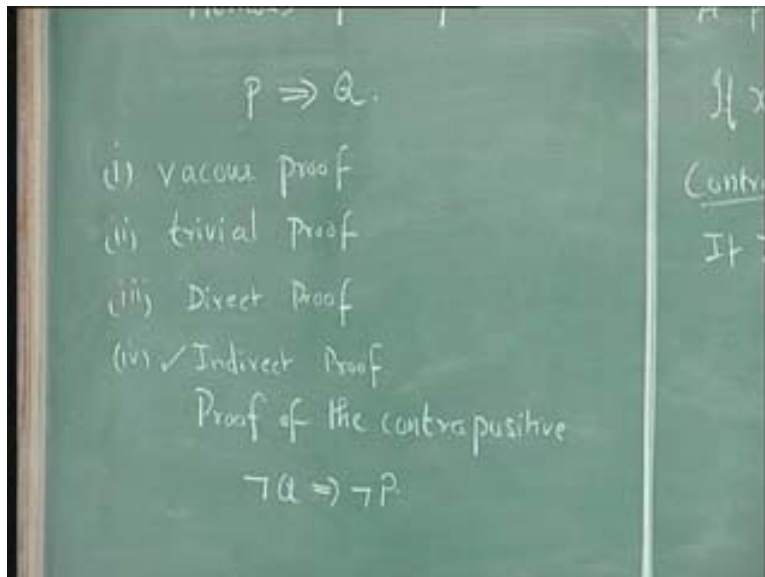 P ⇒ Q.
(i) vacous proof
(ii) trivial Proof
(iii) Direct Proof
(iv) ✓ Indirect Proof
Proof of the contrapositive
¬Q ⇒ ¬P
A P
If x
Contra
It